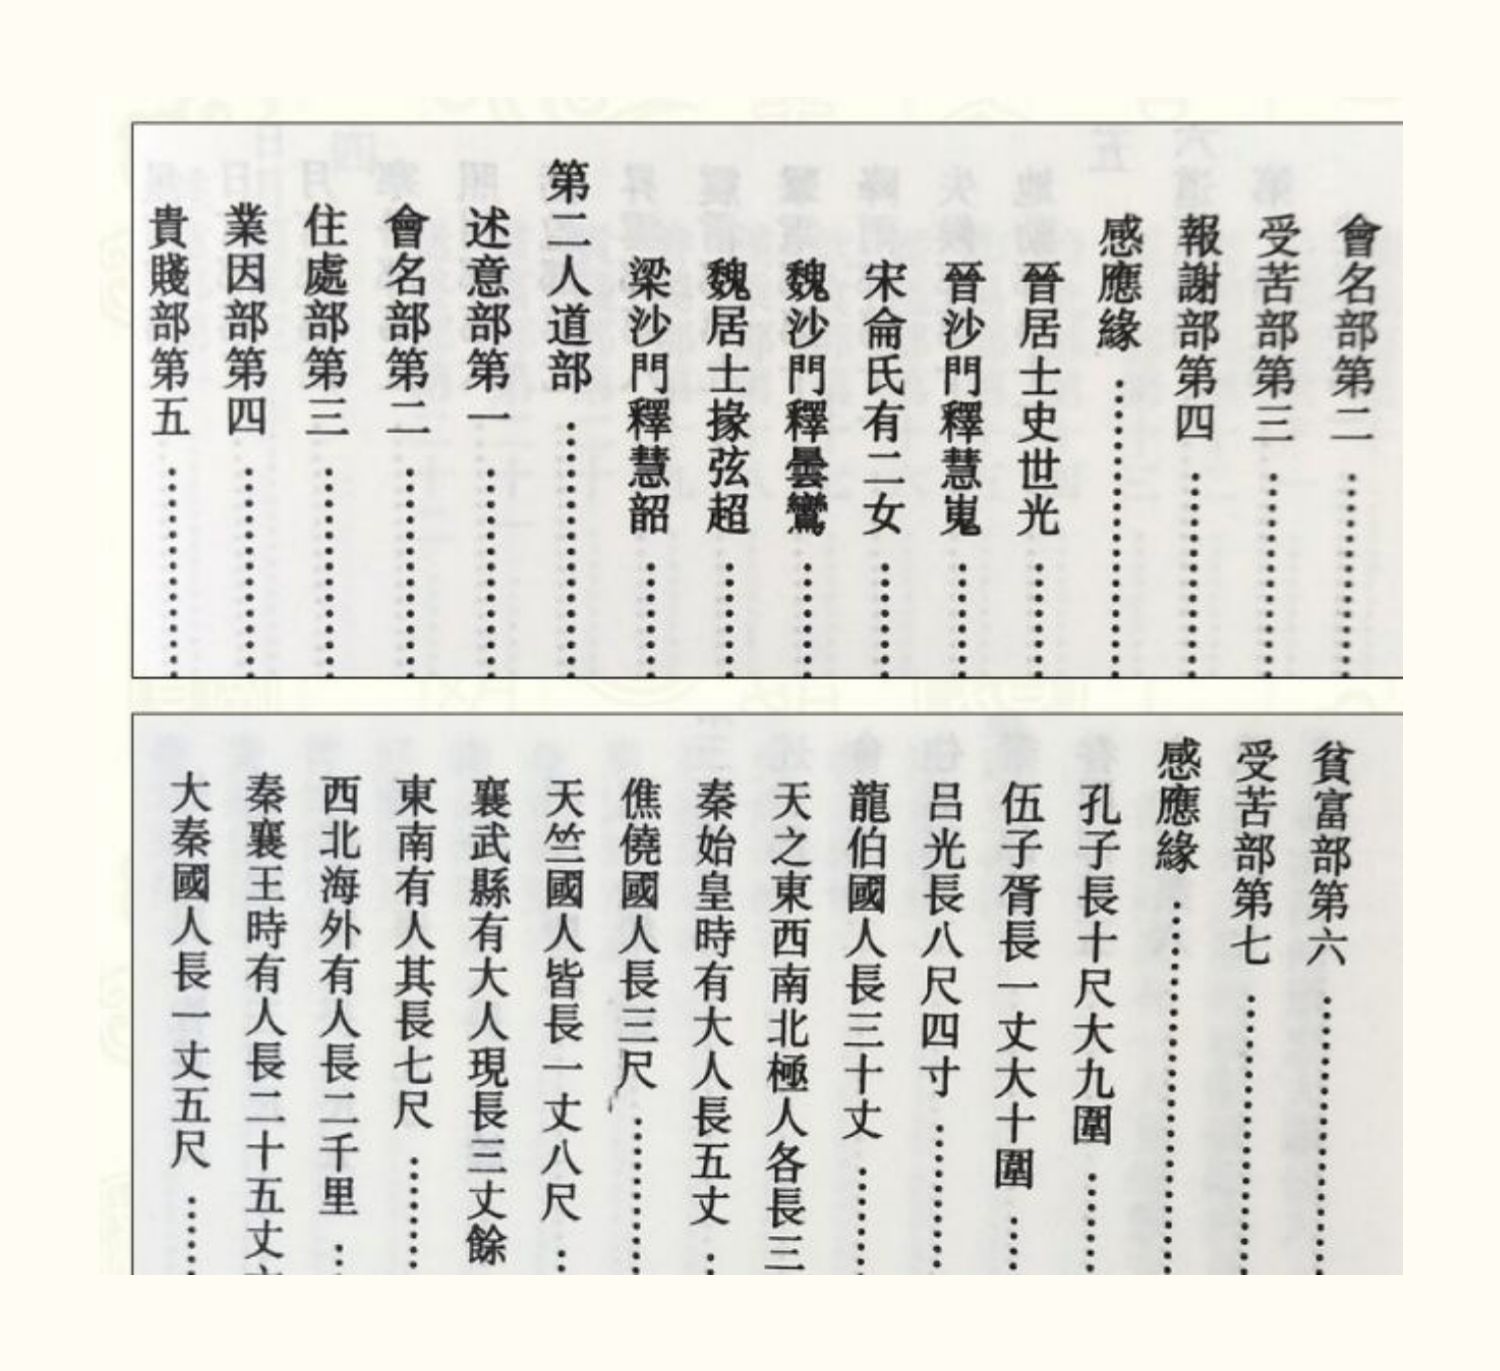 會名部第二
受苦部第三
報謝部第四
感應緣
晉居士史世光
晉沙門釋慧嵬
宋侖氏有二女
魏沙門釋曇鸞
魏居士掾弦超
梁沙門釋慧韶
第二人道部
述意部第一
會名部第二
住處部第三
業因部第四
貴賤部第五
貧富部第六
受苦部第七
感應緣
孔子長十尺大九圍
伍子胥長一丈大十圍
呂光長八尺四寸
龍伯國人長三十丈
天之東西南北極人各長三
秦始皇時有大人長五丈
僬僥國人長三尺
天竺國人皆長一丈八尺
襄武縣有大人現長三丈餘
東南有人其長七尺
西北海外有人長二千里
秦襄王時有人長二十五丈
大秦國人長一丈五尺